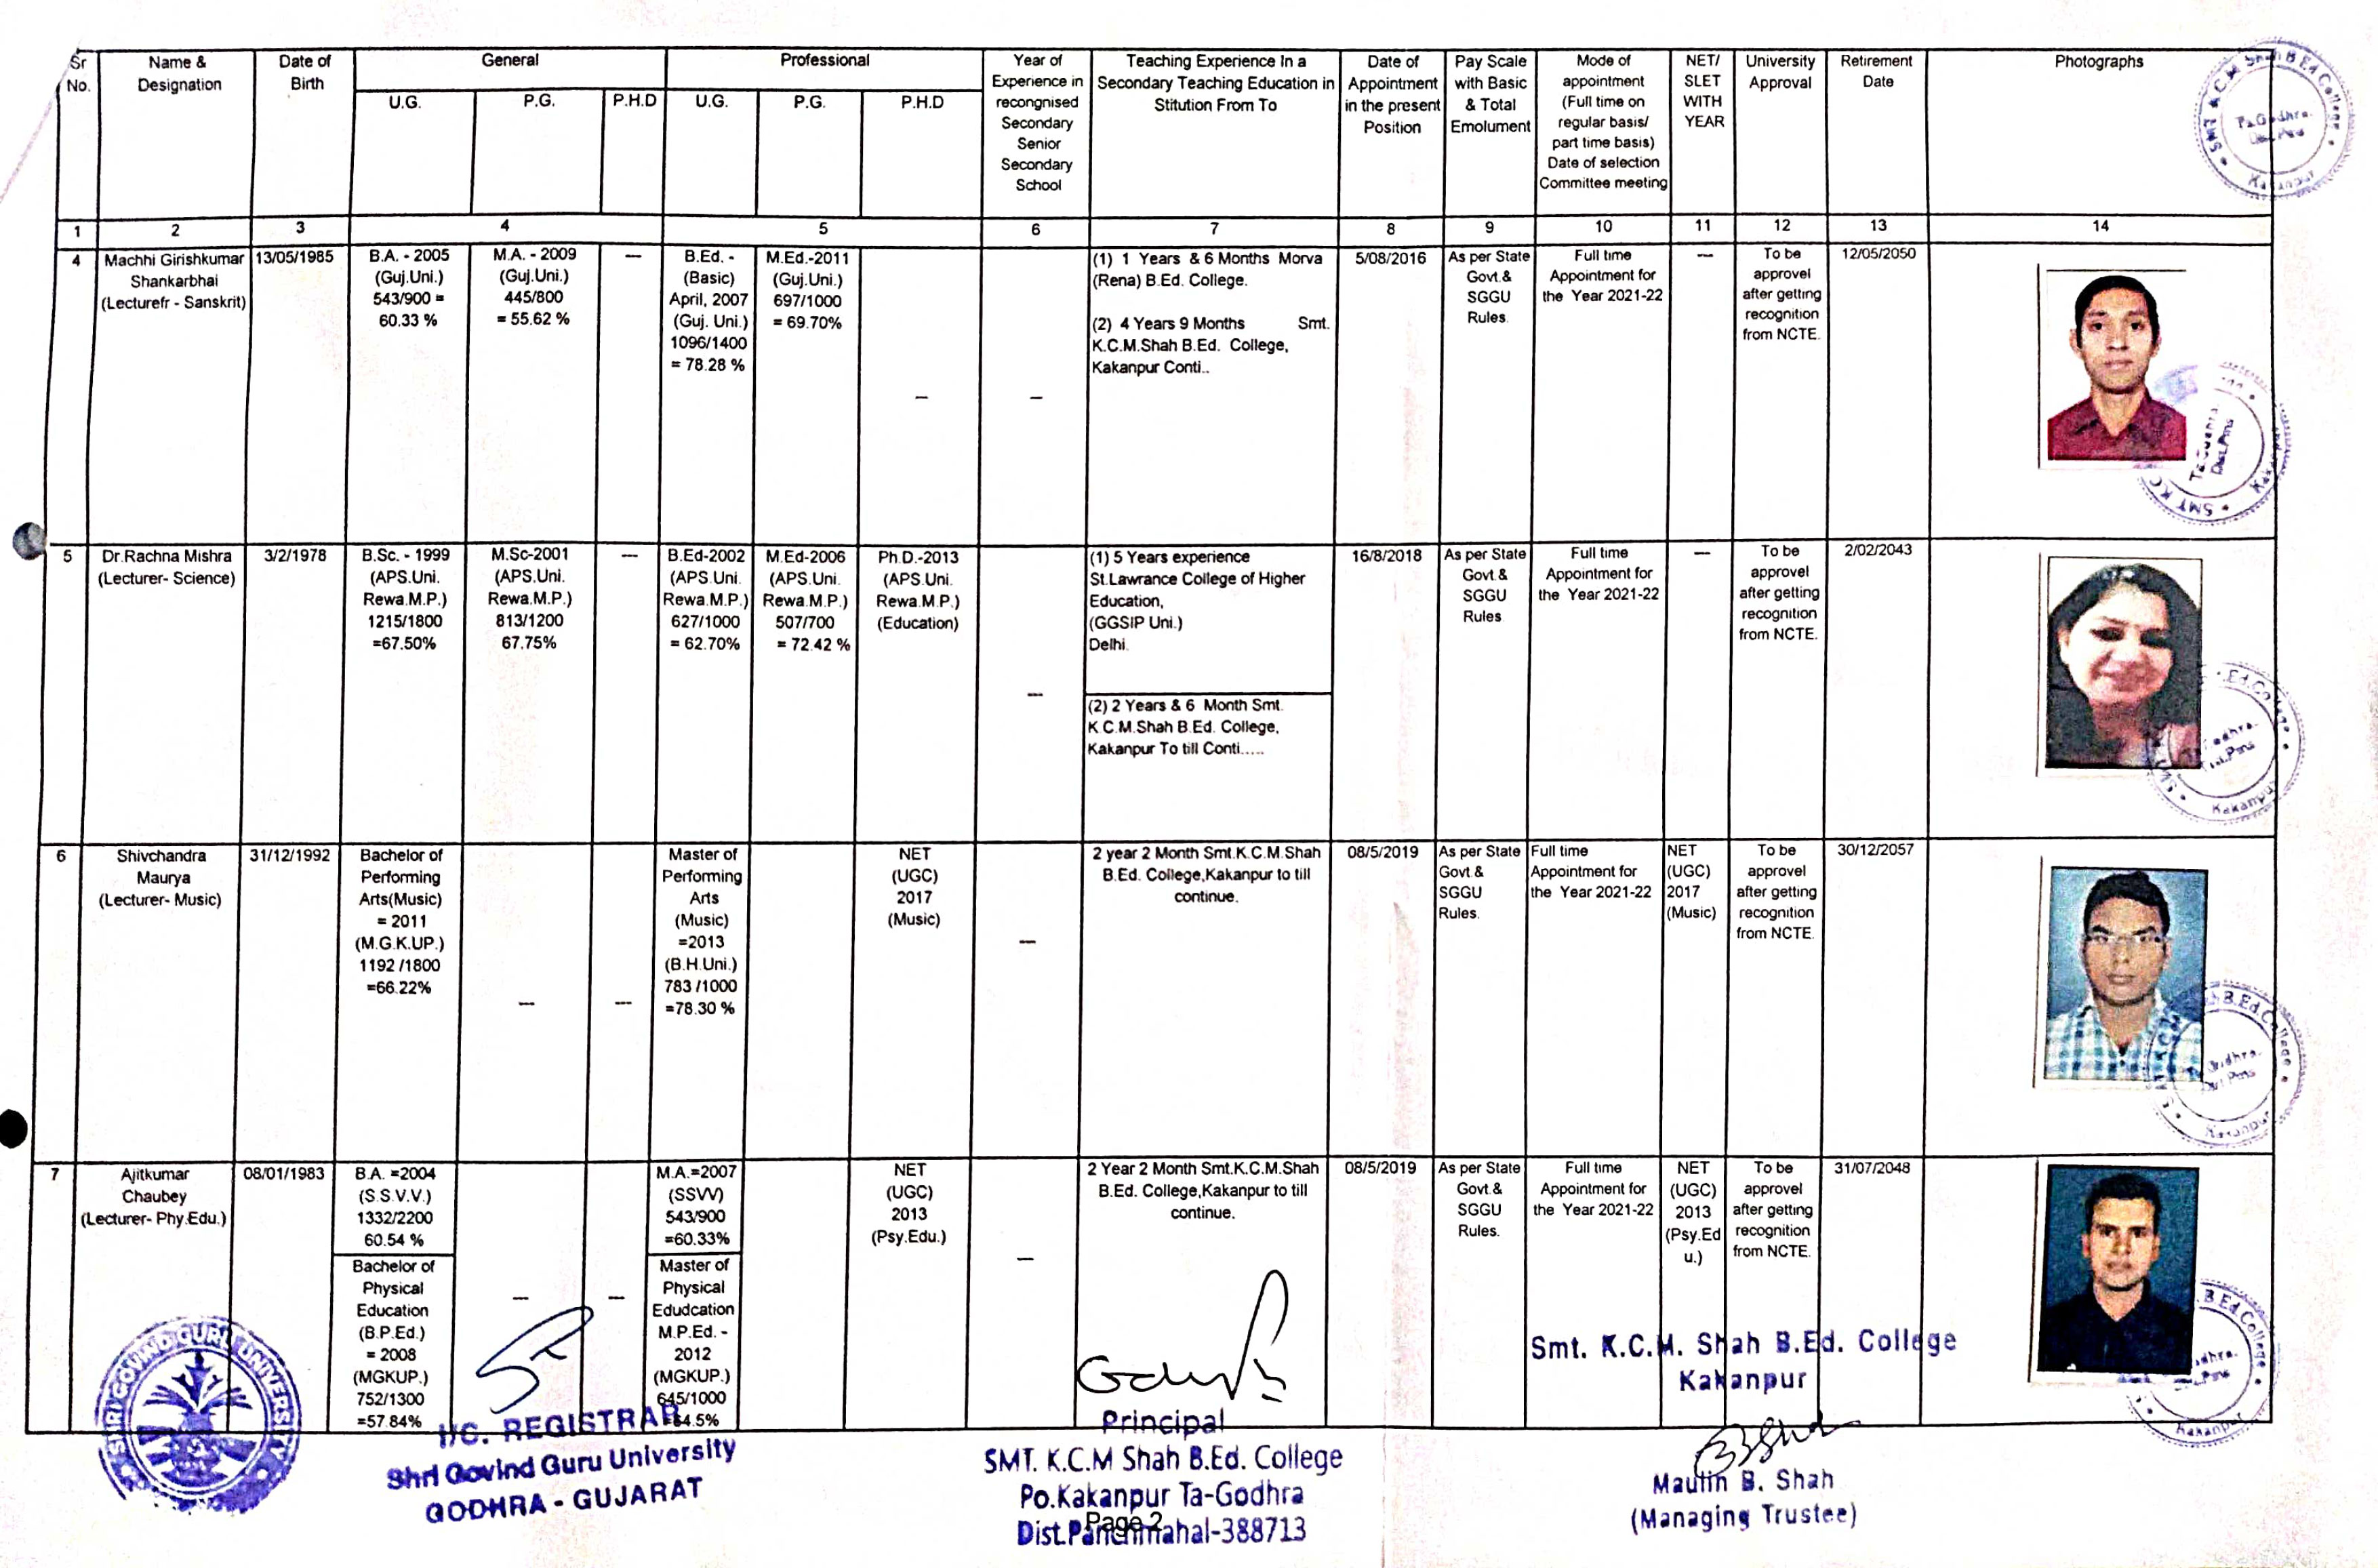 Sr No.
Name & Designation
Date of Birth
General
Professional
U.G.
P.G.
P.H.D
U.G.
P.G.
P.H.D
Year of
Experience in
recongnised
Secondary
Senior
Secondary
School
Teaching Experience In a
Secondary Teaching Education in
Stitution From To
Date of
Appointment
in the present
Position
Pay Scale
with Basic
& Total
Emolument
Mode of
appointment
(Full time on
regular basis/
part time basis)
Date of selection
Committee meeting
NET/
SLET
WITH
YEAR
University
Approval
Retirement
Date
Photographs
1 2 3 4 5 6 7 8 9 10 11 12 13 14
4
Machhi Girishkumar
Shankarbhai
(Lecturefr - Sanskrit)
13/05/1985
B.A. - 2005
(Guj.Uni.)
543/900 =
60.33 %
M.A. - 2009
(Guj.Uni.)
445/800
= 55.62 %
---
B.Ed. -
(Basic)
April, 2007
(Guj. Uni.)
1096/1400
= 78.28 %
M.Ed.-2011
(Guj.Uni.)
697/1000
= 69.70%
--
--
(1) 1 Years & 6 Months Morva
(Rena) B.Ed. College.
(2) 4 Years 9 Months Smt.
K.C.M.Shah B.Ed. College,
Kakanpur Conti..
5/08/2016
As per State
Govt.&
SGGU
Rules.
Full time
Appointment for
the Year 2021-22
---
To be
approvel
after getting
recognition
from NCTE.
12/05/2050
5
Dr.Rachna Mishra
(Lecturer- Science)
3/2/1978
B.Sc. - 1999
(APS.Uni.
Rewa.M.P.)
1215/1800
=67.50%
M.Sc-2001
(APS.Uni.
Rewa.M.P.)
813/1200
67.75%
---
B.Ed-2002
(APS.Uni.
Rewa.M.P.)
627/1000
= 62.70%
M.Ed-2006
(APS.Uni.
Rewa.M.P.)
507/700
= 72.42 %
Ph.D.-2013
(APS.Uni.
Rewa.M.P.)
(Education)
---
(1) 5 Years experience
St.Lawrance College of Higher
Education,
(GGSIP Uni.)
Delhi.
(2) 2 Years & 6 Month Smt.
K.C.M.Shah B.Ed. College,
Kakanpur To till Conti.....
16/8/2018
As per State
Govt.&
SGGU
Rules
Full time
Appointment for
the Year 2021-22
---
To be
approvel
after getting
recognition
from NCTE.
2/02/2043
6
Shivchandra
Maurya
(Lecturer- Music)
31/12/1992
Bachelor of
Performing
Arts(Music)
= 2011
(M.G.K.UP.)
1192 /1800
=66.22%
---
---
Master of
Performing
Arts
(Music)
=2013
(B.H.Uni.)
783 /1000
=78.30 %
NET
(UGC)
2017
(Music)
---
2 year 2 Month Smt.K.C.M.Shah
B.Ed. College,Kakanpur to till
continue.
08/5/2019
As per State
Govt.&
SGGU
Rules.
Full time
Appointment for
the Year 2021-22
NET
(UGC)
2017
(Music)
To be
approvel
after getting
recognition
from NCTE.
30/12/2057
7
Ajitkumar
Chaubey
(Lecturer- Phy.Edu.)
08/01/1983
B.A. =2004
(S.S.V.V.)
1332/2200
60.54 %
Bachelor of
Physical
Education
(B.P.Ed.)
= 2008
(MGKUP.)
752/1300
=57.84%
---
---
M.A.=2007
(SSVV)
543/900
=60.33%
Master of
Physical
Edudcation
M.P.Ed. -
2012
(MGKUP.)
645/1000
=64.5%
NET
(UGC)
2013
(Psy.Edu.)
---
2 Year 2 Month Smt.K.C.M.Shah
B.Ed. College,Kakanpur to till
continue.
08/5/2019
As per State
Govt.&
SGGU
Rules.
Full time
Appointment for
the Year 2021-22
NET
(UGC)
2013
(Psy.Ed
u.)
To be
approvel
after getting
recognition
from NCTE.
31/07/2048
SHRI GOVIND GURU UNIVERSITY
I/C. REGISTRAR
Shri Govind Guru University
GODHRA - GUJARAT
Principal
SMT. K.C.M Shah B.Ed. College
Po.Kakanpur Ta-Godhra
Dist.Panchmahal-388713
Page 2
Smt. K.C.M. Shah B.Ed. College
Kakanpur
Maulin B. Shah
(Managing Trustee)
SMT K C M Shah B Ed College
Ta.Godhra.
Kakanpur